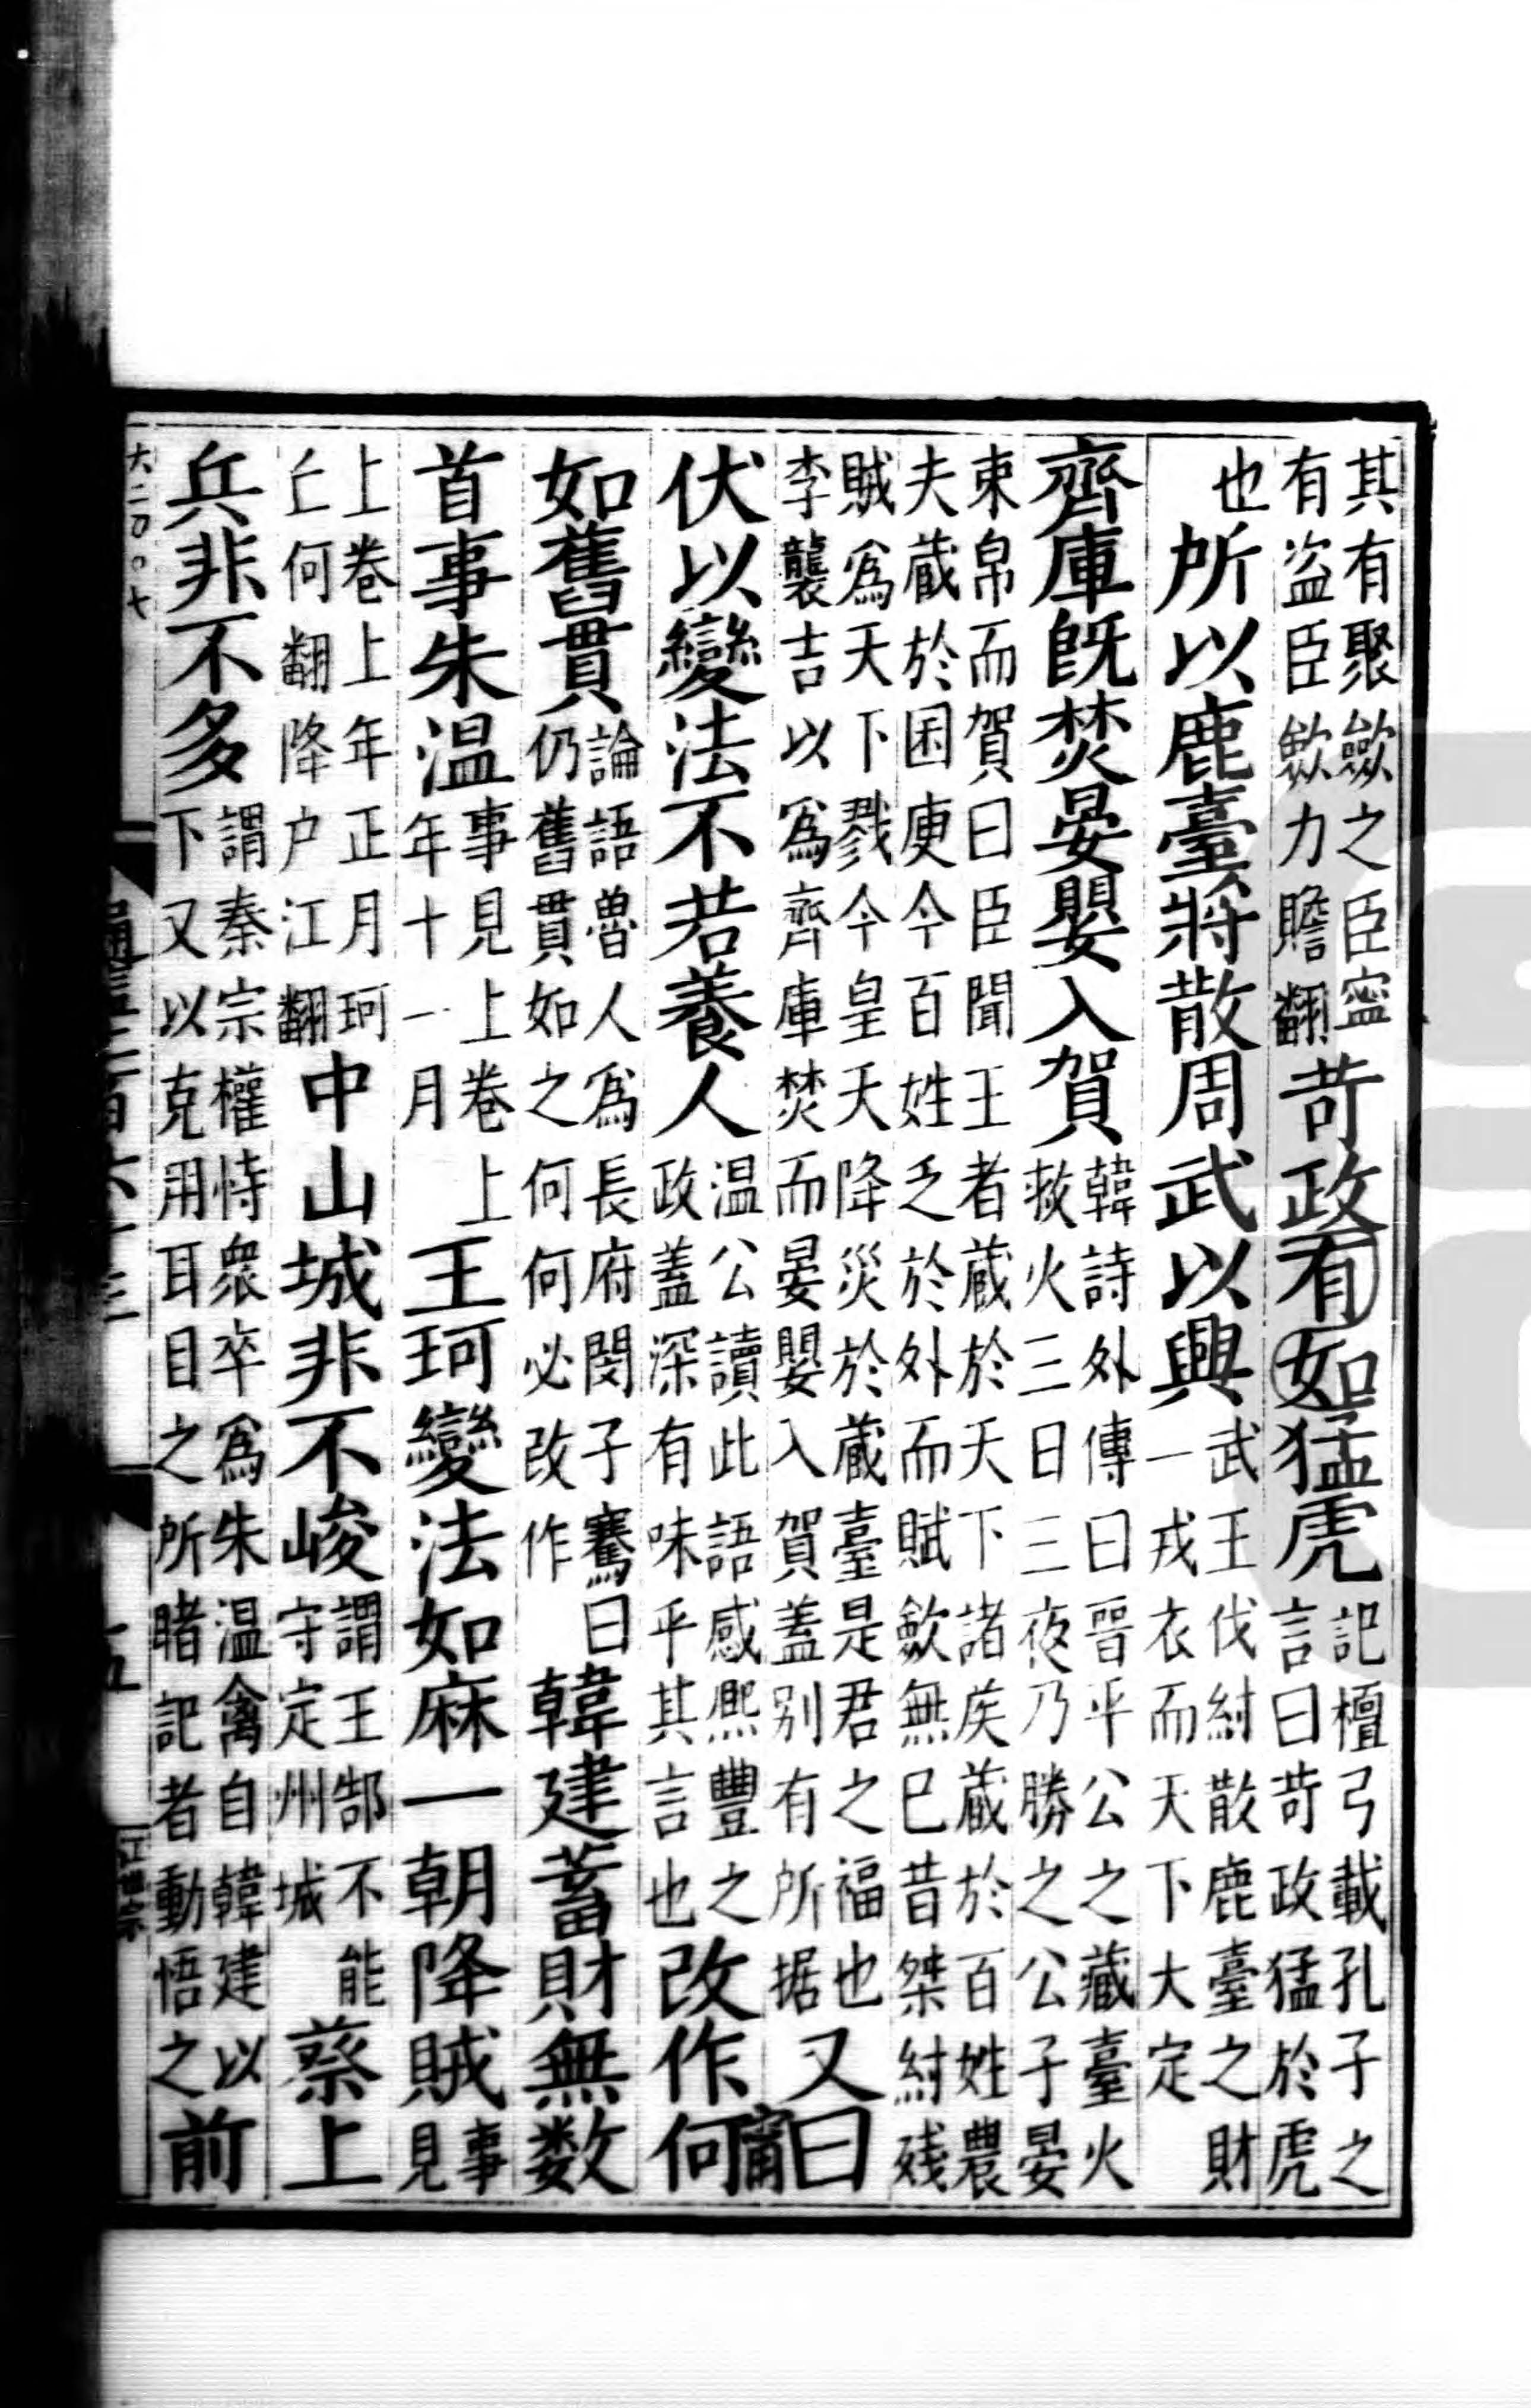 其有聚斂之臣寧
有盜臣斂力贍翻
苛政有如猛虎
記檀弓載孔子之
言曰苛政猛於虎
也
所以鹿臺將散周武以興
武王伐紂散鹿臺之財
一戎衣而天下大定
齊庫旣焚晏嬰入賀
韓詩外傳曰晉平公之藏臺火
救火三日三夜乃勝之公子晏
束帛而賀曰臣聞王者蔵於天下諸矦蔵於百姓農
夫蔵於囷庾今百姓乏於外而賦斂無已昔桀紂殘
賊爲天下戮今皇天降災於蔵臺是君之福也
李襲吉以爲齊庫焚而晏嬰入賀蓋别有所据
又曰
伏以變法不若養人
温公讀此語感熈豐之
政蓋深有味乎其言也
改作何
如舊貫
論語魯人爲長府閔子騫曰
仍舊貫如之何何必改作
韓建蓄財無数
首事朱温
事見上卷上
年十一月
王珂變法如麻一朝降賊
事見
上卷上年正月珂
亡何翻降户江翻
中山城非不峻
謂王郜不能
守定州城
蔡上
兵非不多
謂秦宗權恃衆卒爲朱温禽自韓建以
下又以克用耳目之所睹記者動悟之
前
大二百〇七